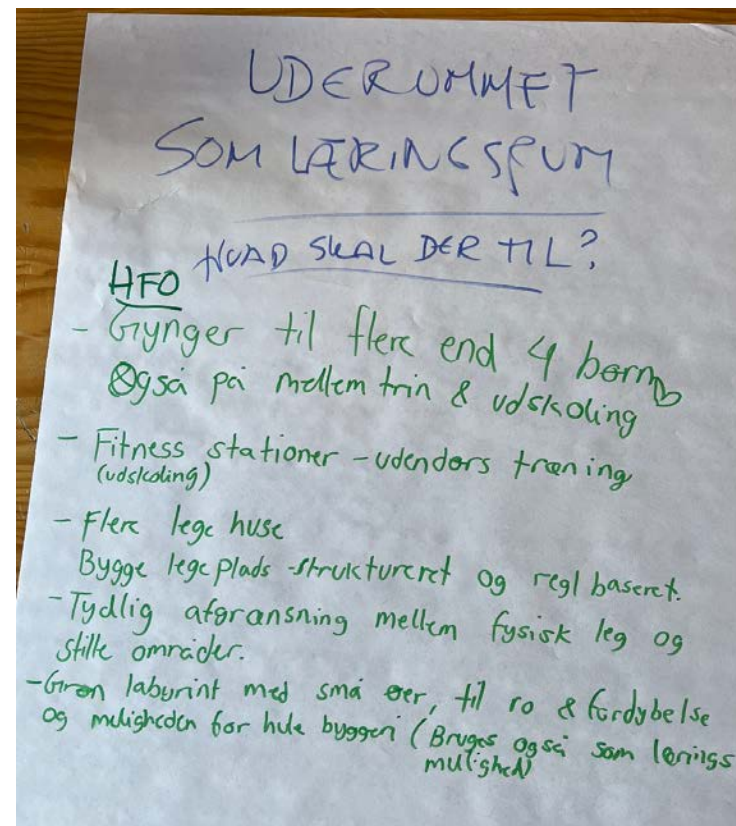 UDERUMMET
SOM LÆRINGSRUM
HVAD SKAL DER TIL?
HFO
- Gynger til flere end 4 børn
Også på mellem trin & udskoling
- Fitness stationer - udendørs træning
(udskoling)
- Flere lege huse
Bygge legeplads - struktureret og regl baseret.
- Tydlig afgrænsning mellem fysisk leg og
stille områder.
- Grøn labyrint med små øer, til ro & fordybelse
og muligheden for hule byggeri (Bruges også som lærings
mulighed)